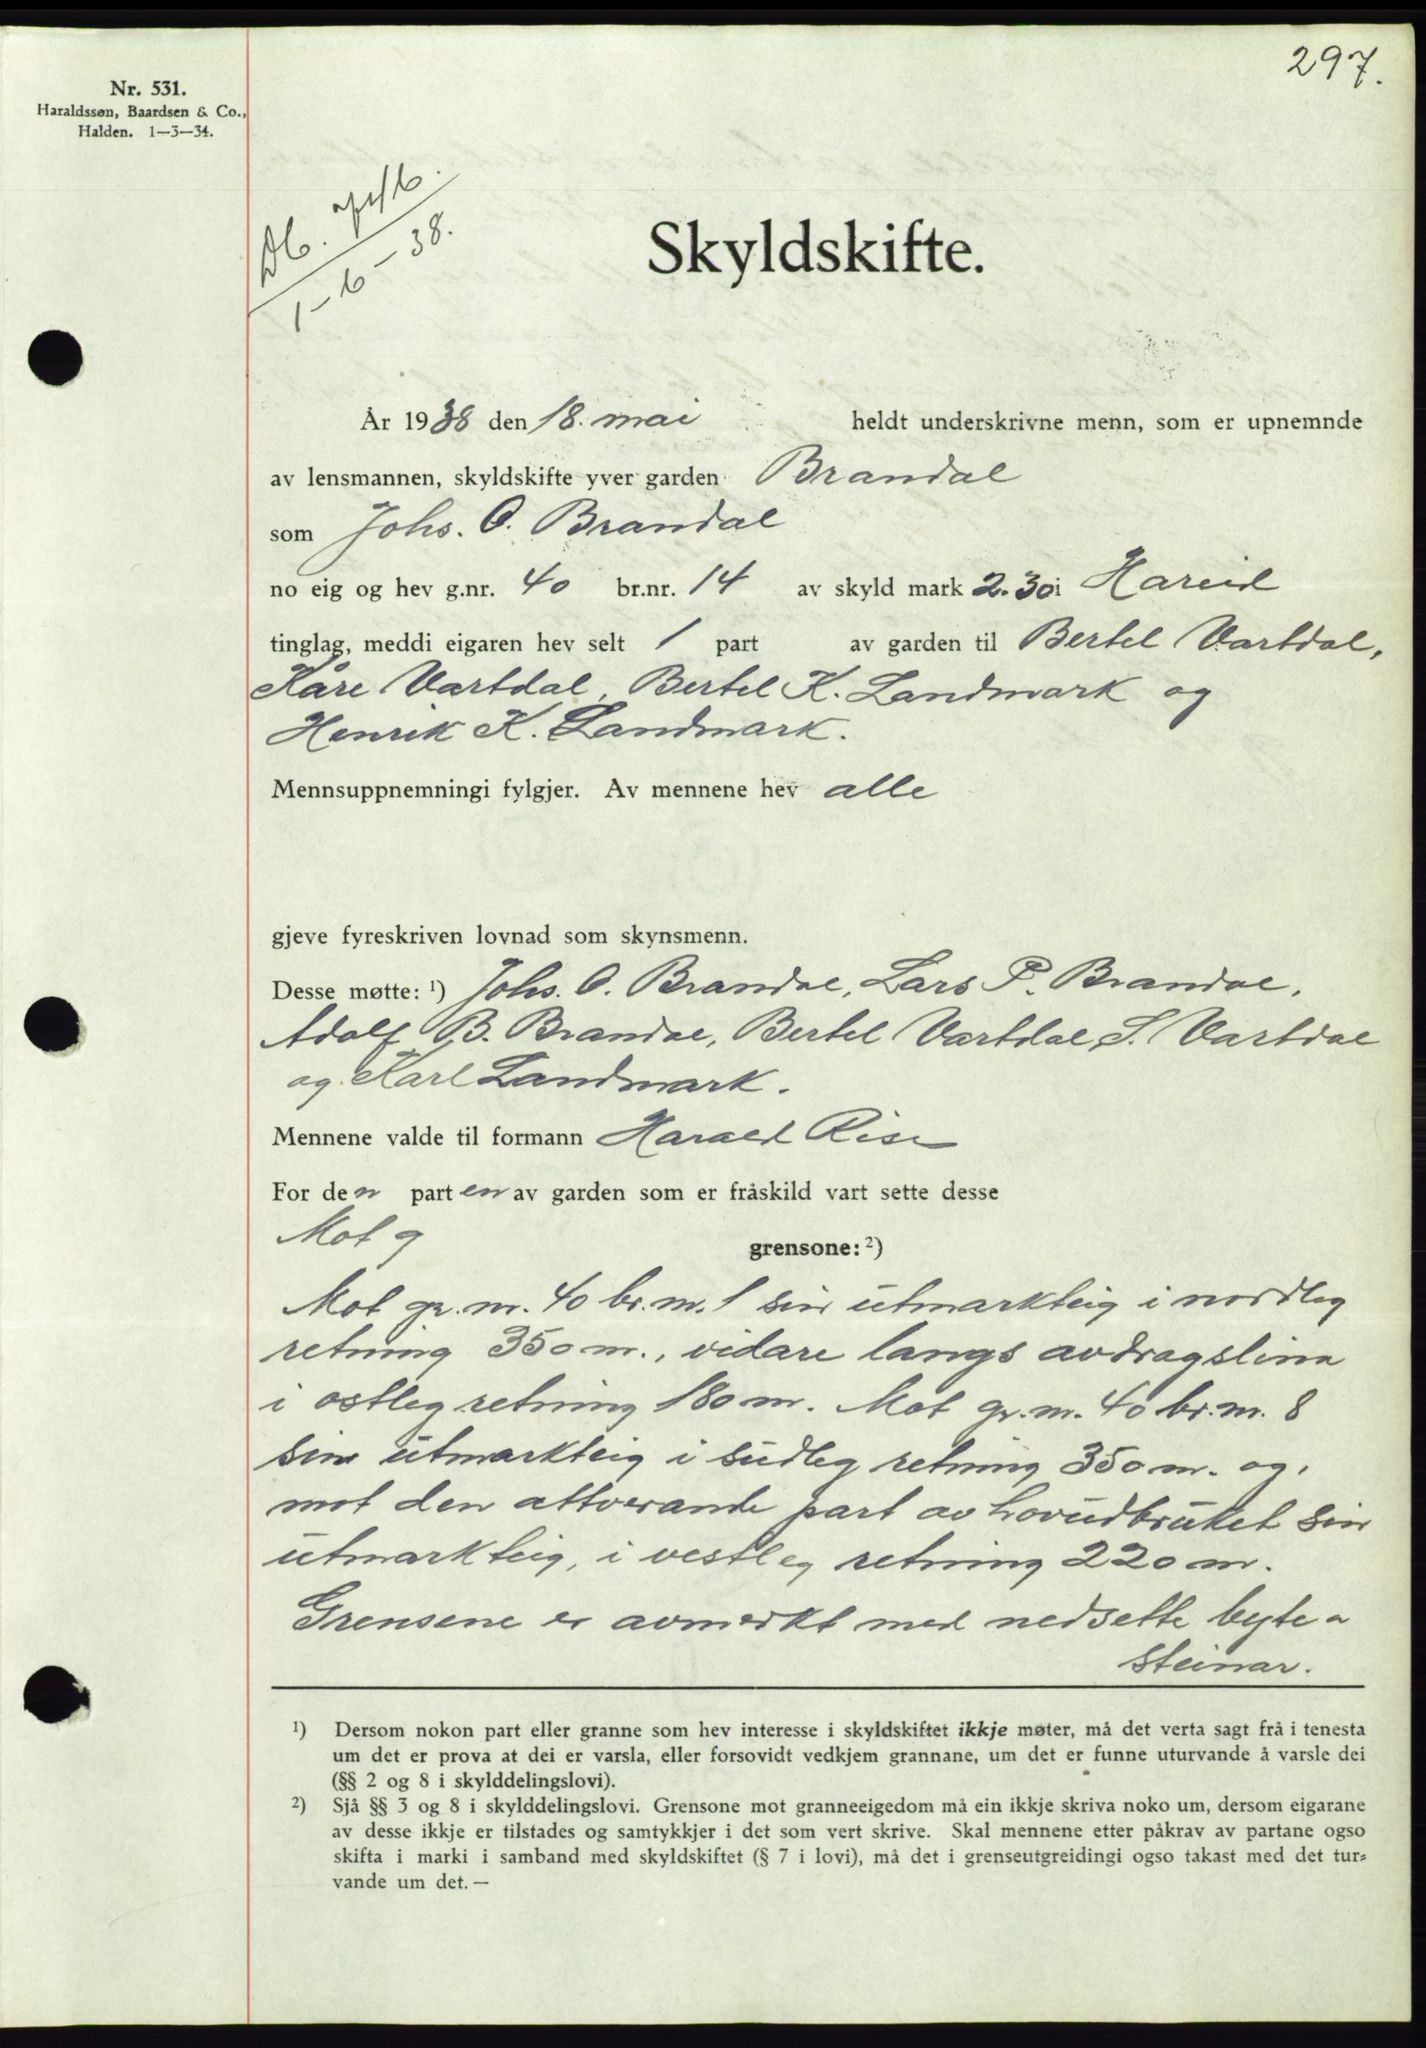 297.
Nr. 531.
Haraldssøn, Baardsen & Co.,
Halden. 1—3—34.
Db.
1-6-38.
Skyldskifte.
År 1938 den 18. mai heldt underskrivne menn, som er upnemnde
av lensmannen, skyldskifte yver garden Brandal
som Johs. O. Brandal
no eig og hev g.nr. 40 br.nr. 14 av skyld mark 2.30 i Hareid
tinglag, meddi eigaren hev selt 1 part av garden til Bertel Vartdal,
Kåre Vartdal, Bertel K. Landmark og
Henrik K. Landmark.
Mennsuppnemningi fylgjer. Av mennene hev alle
gjeve fyreskriven lovnad som skynsmenn.
Desse møtte: ¹) Johs. O. Brandal, Lars P. Brandal,
Adolf B. Brandal, Bertel Vartdal, S. Vartdal
og Karl Landmark.
Mennene valde til formann Harald Rise
For den parten av garden som er fråskild vart sette desse
Mot g
grensone: ²)
Mot gr. nr. 40 br. nr. 1 sin utmarkteig i nordleg
retning 350 m., vidare langs avdragslina
i østleg retning 180 m. Mot gr. nr. 40 br. nr. 8
sin utmarkteig i sudleg retning 350 m. og,
mot den attverande part av hovudbruket sin
utmarkteig, i vestleg retning 220 m.
Grensene er avmerkt med nedsette byte-
steinar.
¹) Dersom nokon part eller granne som hev interesse i skyldskiftet ikkje møter, må det verta sagt frå i tenesta
um det er prova at dei er varsla, eller forsovidt vedkjem grannane, um det er funne uturvande å varsle dei
(§§ 2 og 8 i skylddelingslovi).
²) Sjå §§ 3 og 8 i skylddelingslovi. Grensone mot granneeigedom må ein ikkje skriva noko um, dersom eigarane
av desse ikkje er tilstades og samtykkjer i det som vert skrive. Skal mennene etter påkrav av partane ogso
skifta i marki i samband med skyldskiftet (§ 7 i lovi), må det i grenseutgreidingi ogso takast med det tur-
vande um det. —